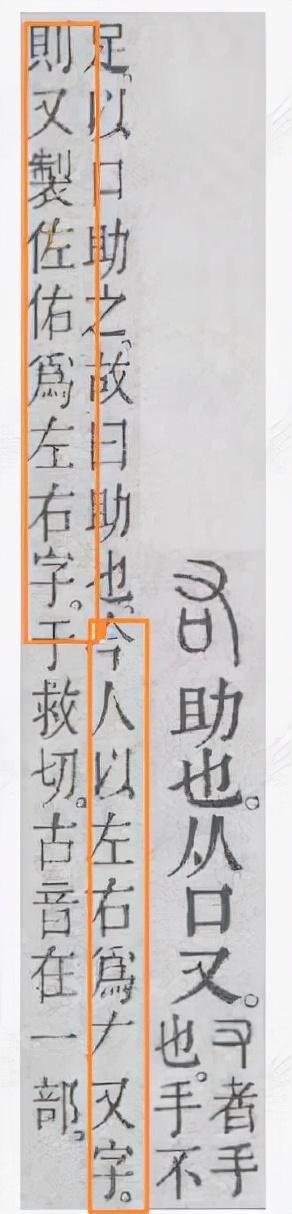 右助也。从口又。
又者手
也。手不
足、以口助之、故曰助也。今人以左右爲𠂇又字。
則又製佐佑爲左右字。于救切。古音在一部。